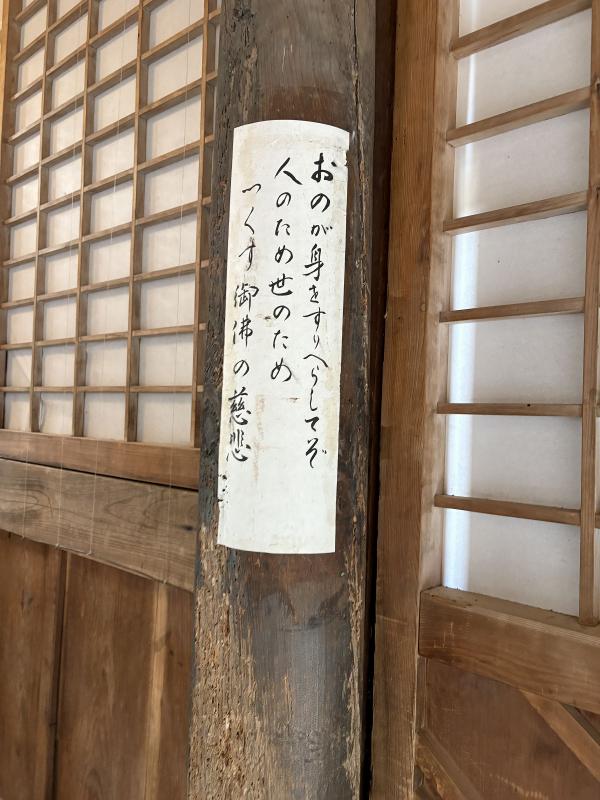 おのが身をすりへらしてぞ
人のため世のため
つくす御佛の慈悲